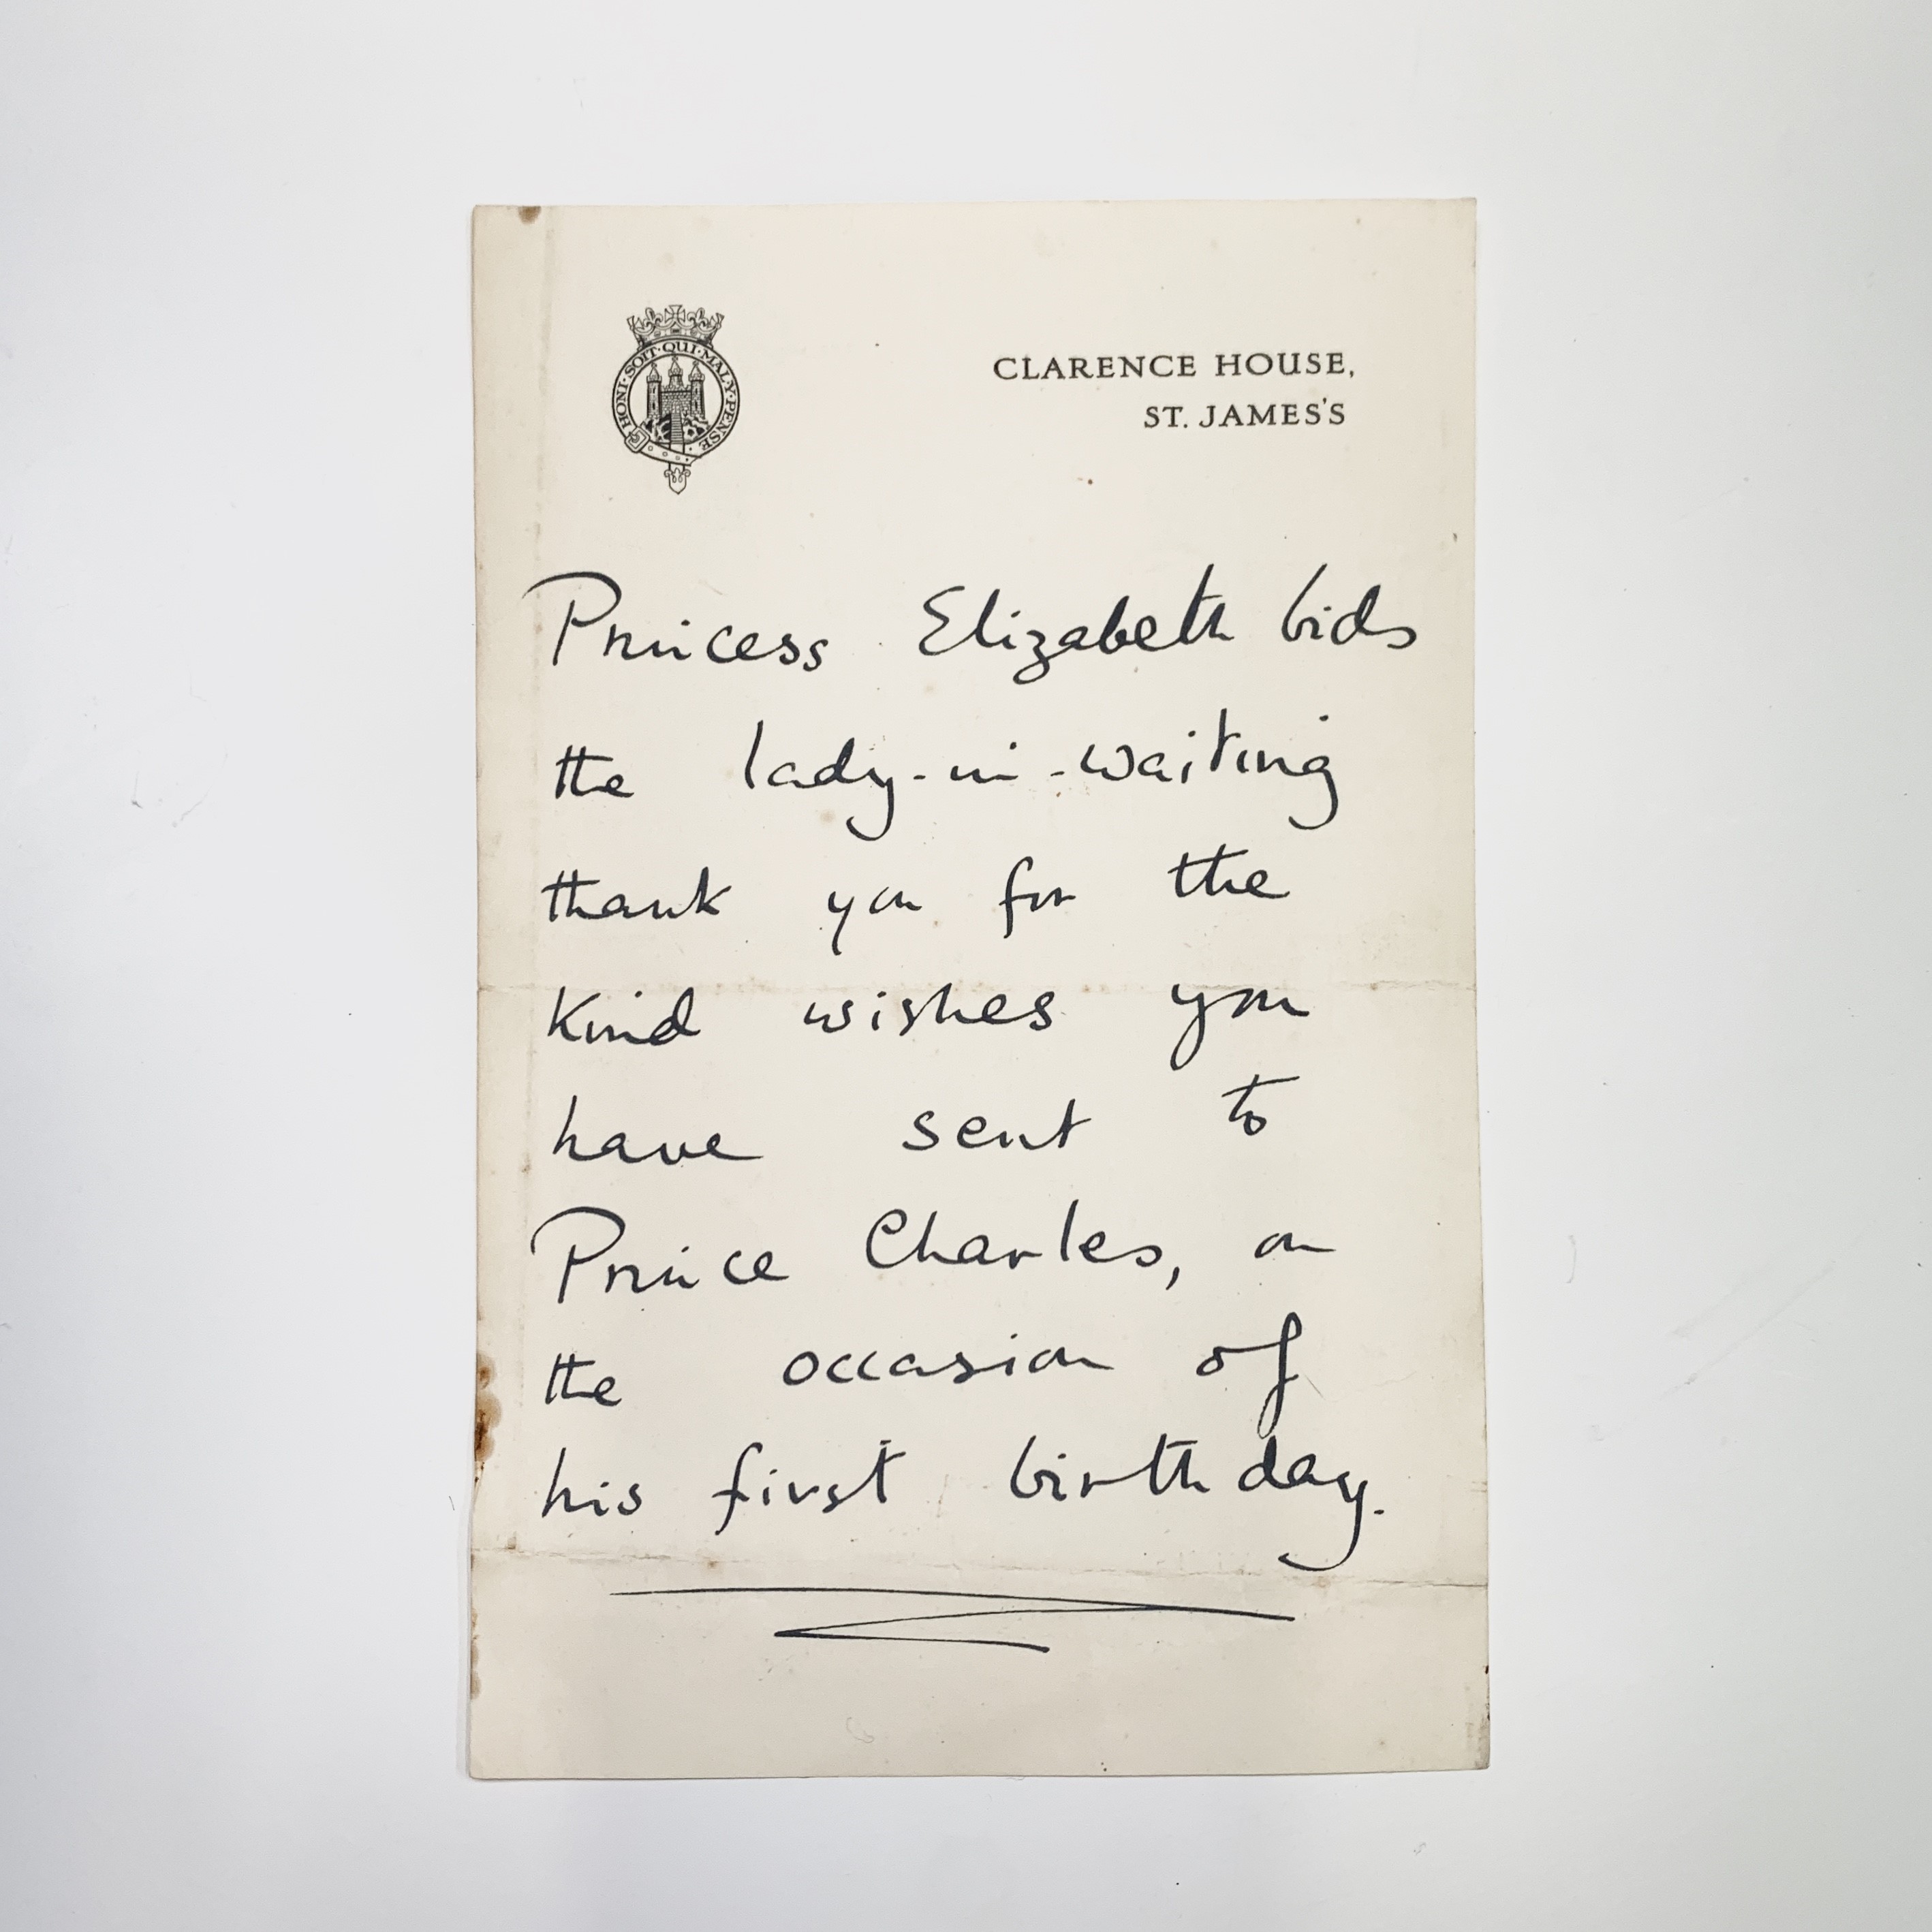 HONI·SOIT·QUI·MAL·Y·PENSE
CLARENCE HOUSE,
ST. JAMES'S
Princess Elizabeth bids
the lady-in-waiting
thank you for the
kind wishes you
have sent to
Prince Charles, on
the occasion of
his first birthday.